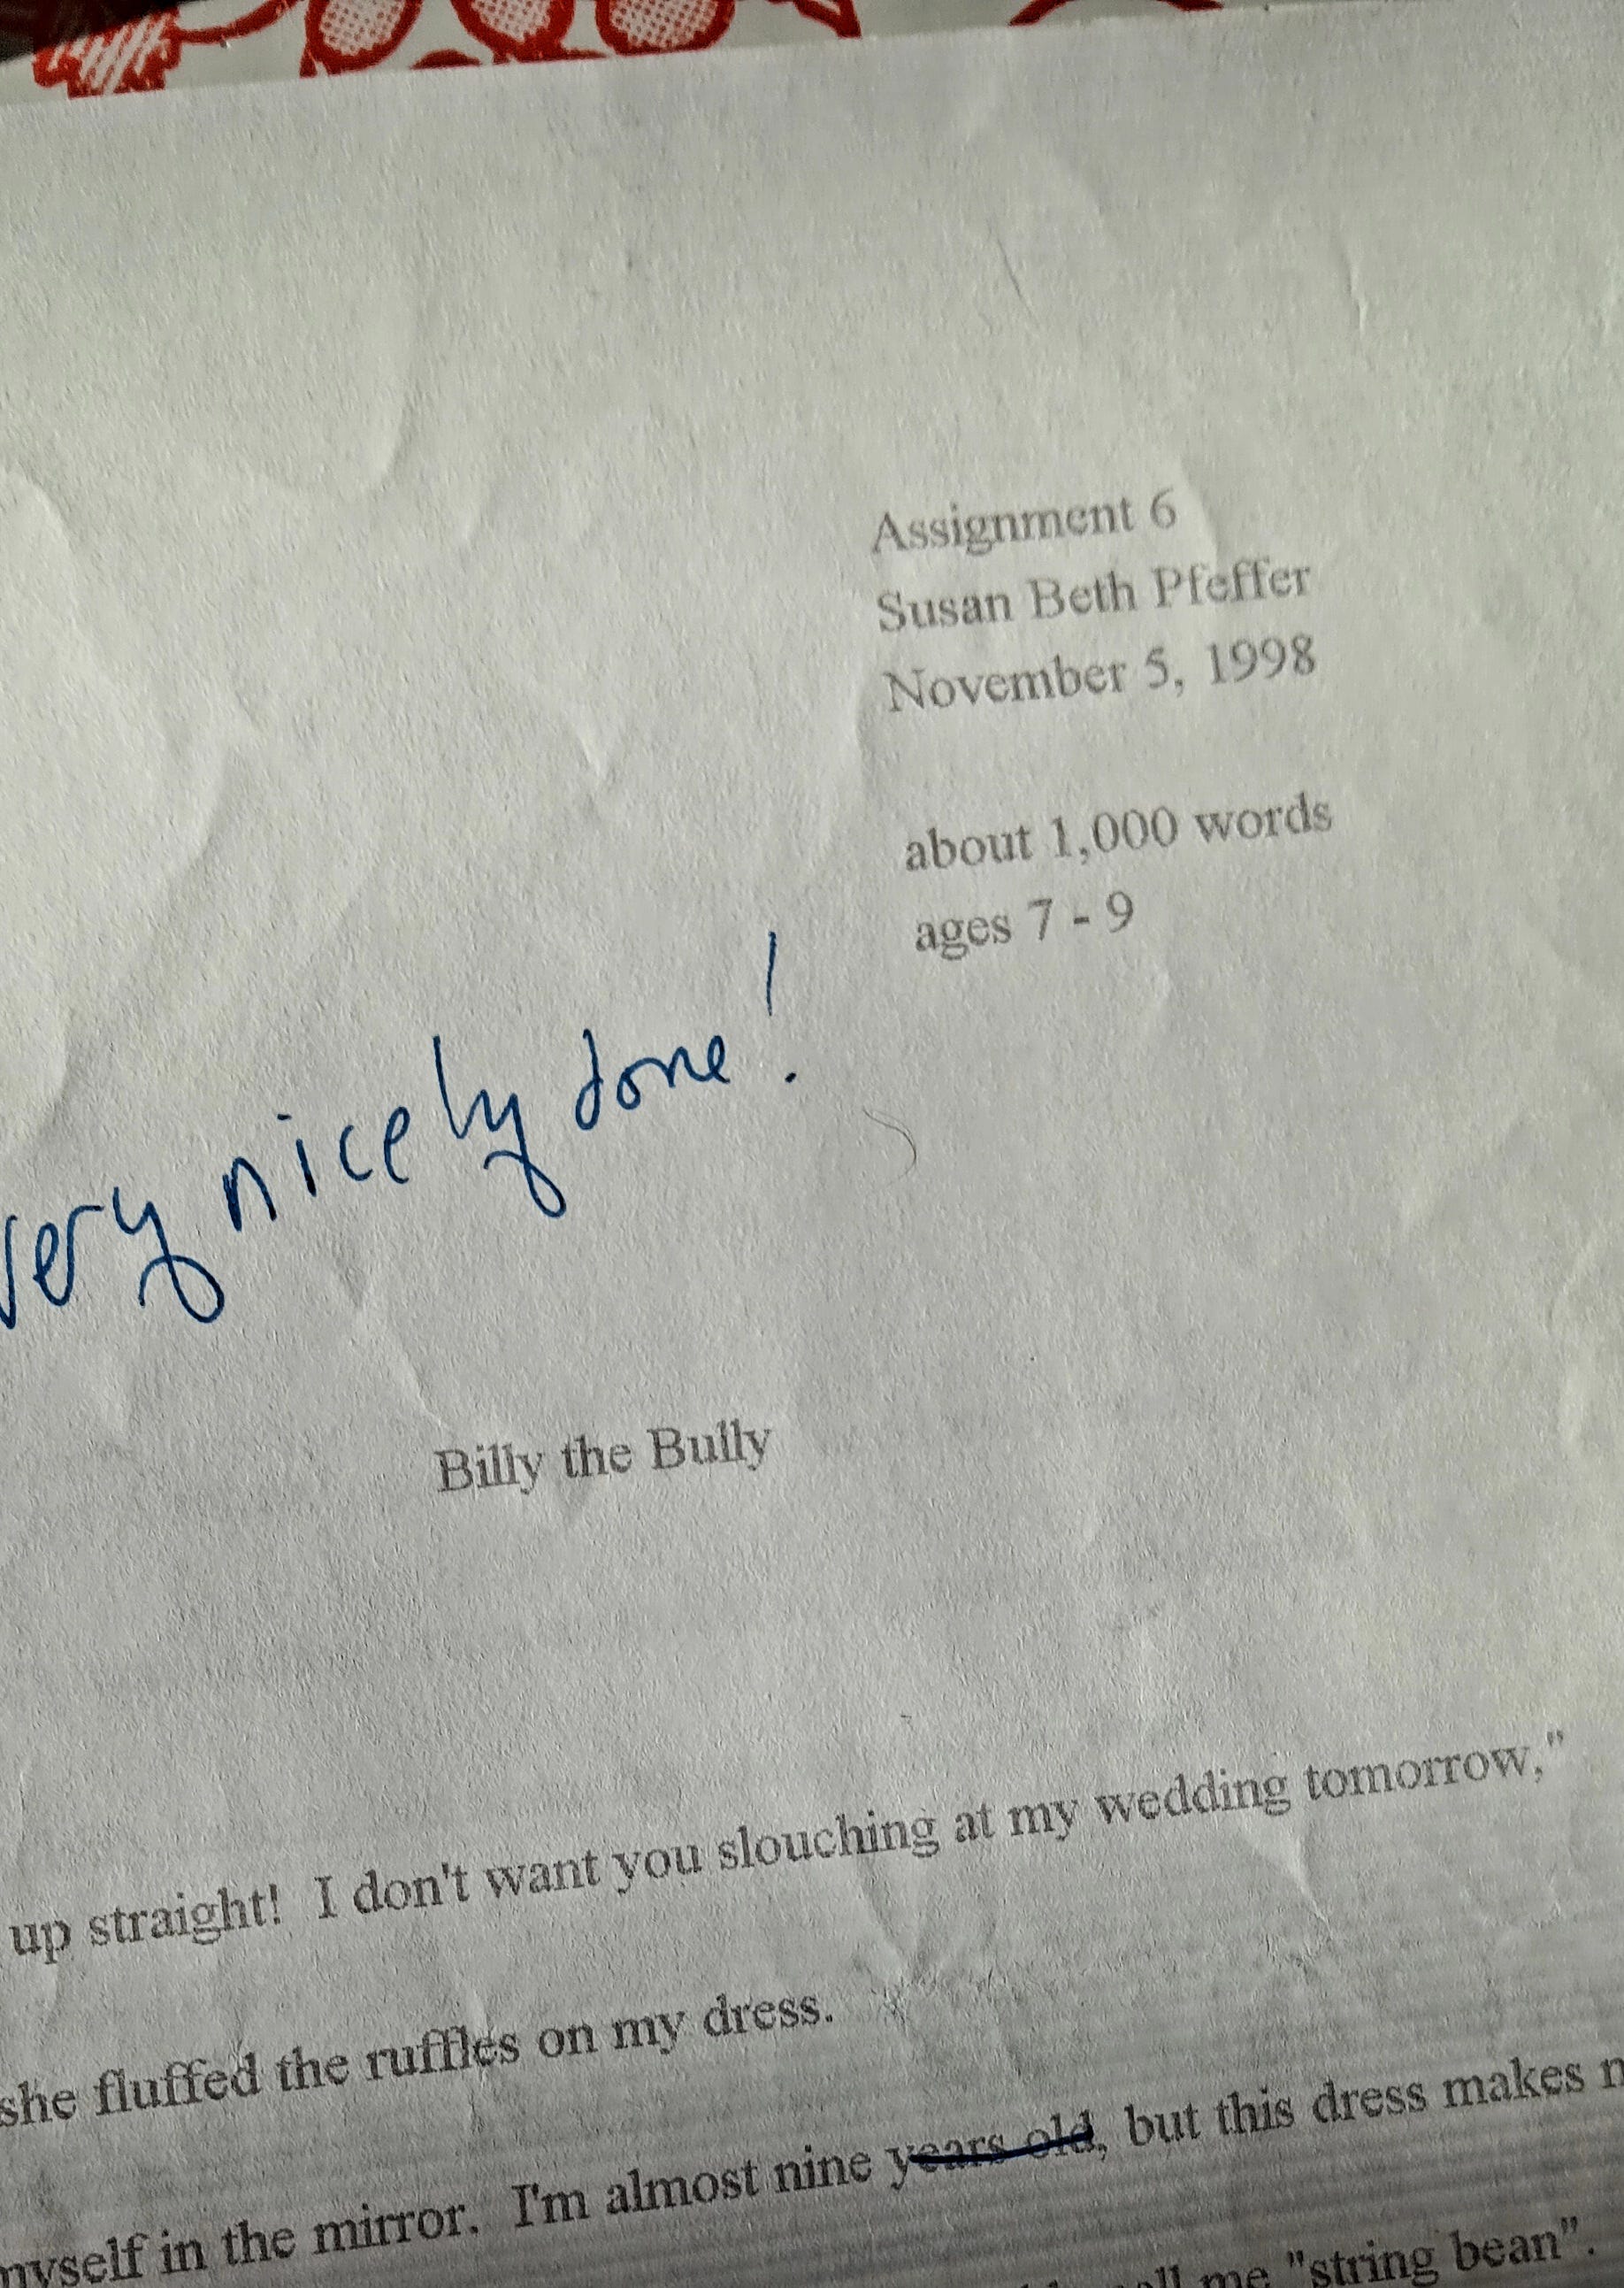 Assignment 6
Susan Beth Pfeffer
November 5, 1998
about 1,000 words
ages 7 - 9
very nicely done!
Billy the Bully
up straight!  I don't want you slouching at my wedding tomorrow,"
she fluffed the ruffles on my dress.
myself in the mirror.  I'm almost nine years old, but this dress makes
me "string bean".